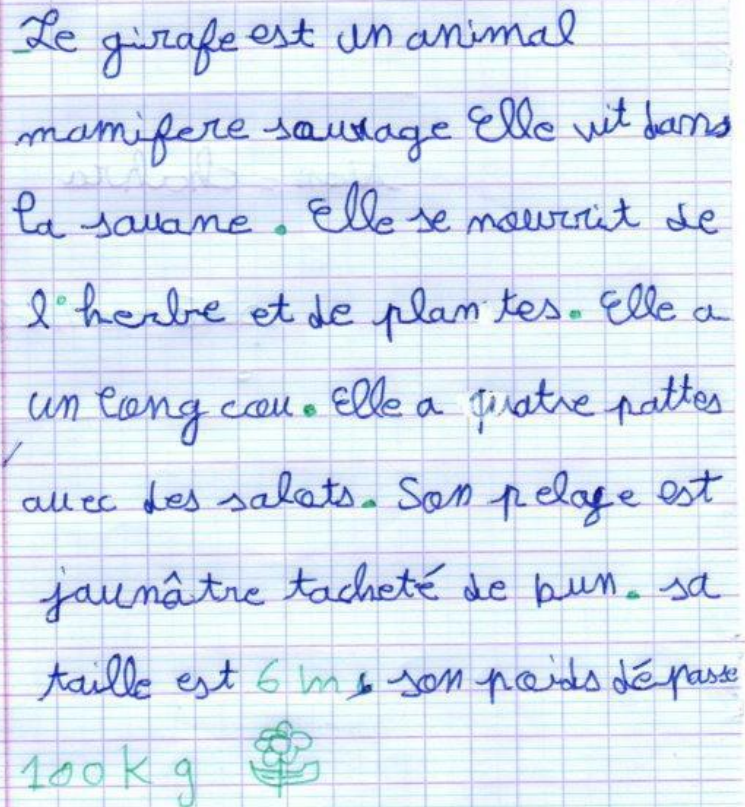 Le girafe est un animal
mamifere sauvage Elle vit dans
la savane. Elle se nourrit de
l'herbe et de plantes. Elle a
un long cou. Elle a quatre pattes
avec des salots. Son pelage est
jaunâtre tacheté de bun. sa
taille est 6 m, son poids dépasse
100Kg